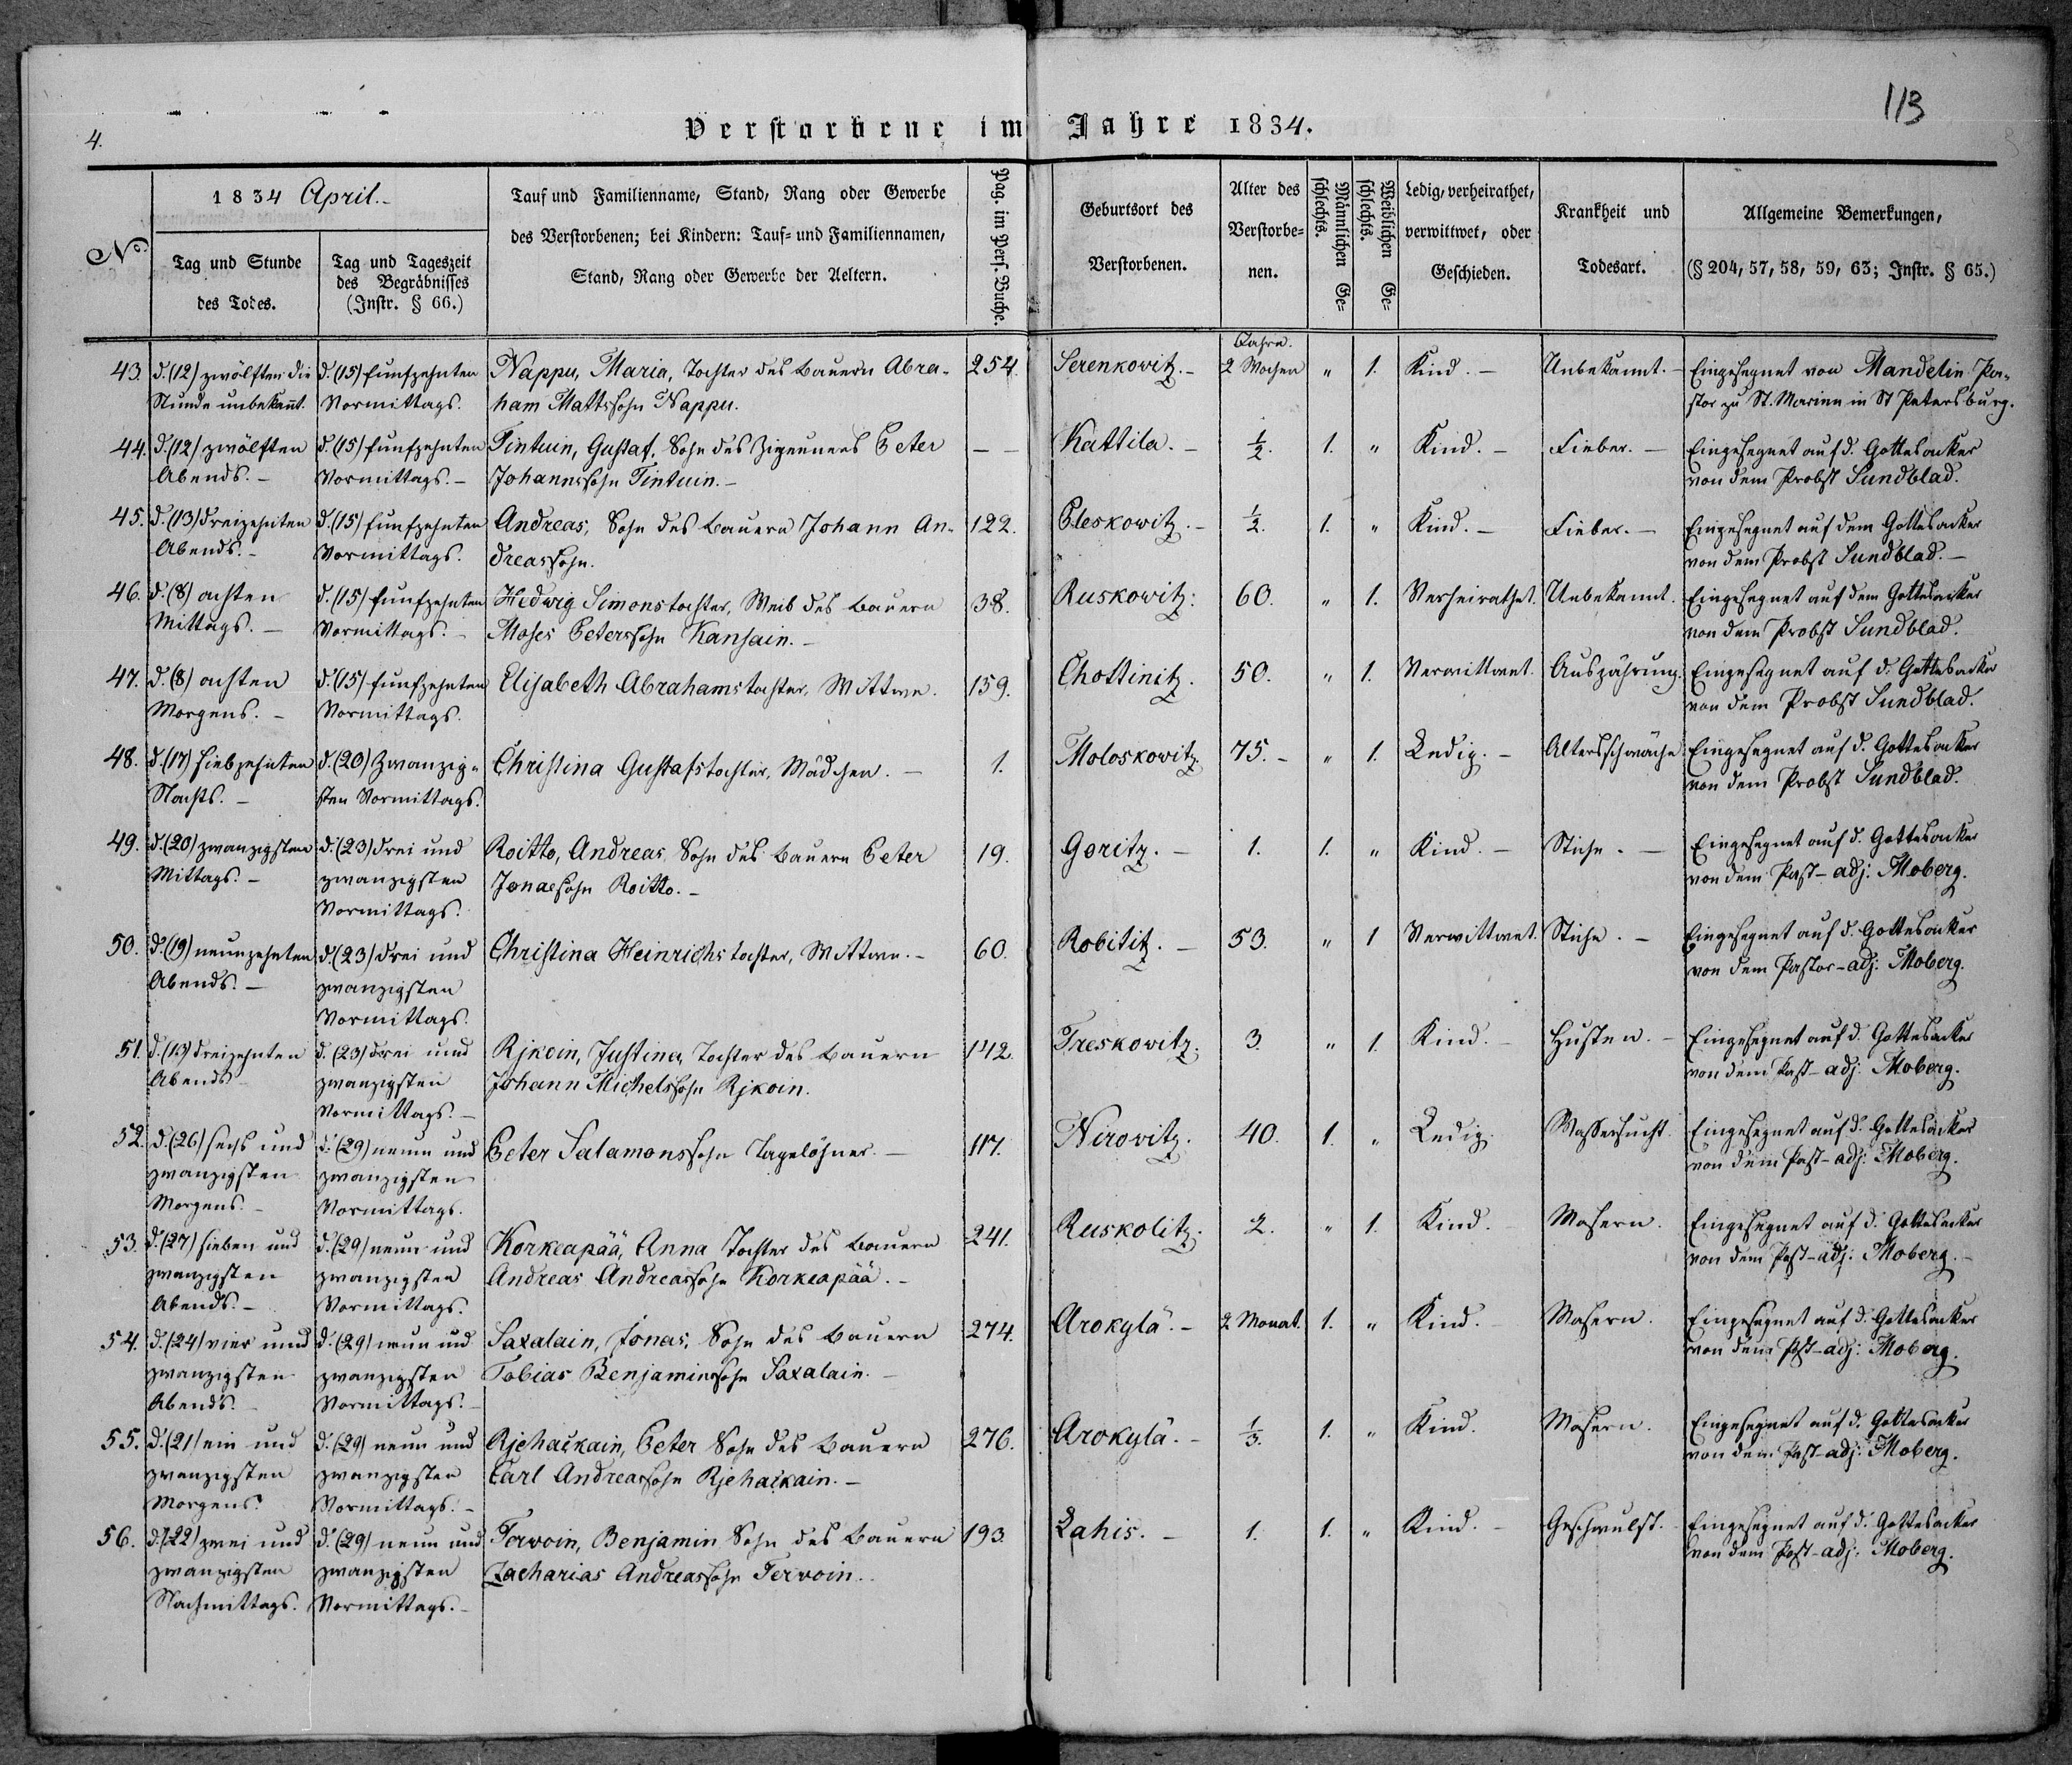 113
4.
Verstorbene im Jahre 1834.
No.
1834 April.
Tag und Stunde
des Todes.
Tag und Tageszeit
des Begräbnisses
(Instr. § 66.)
Tauf und Familienname, Stand, Rang oder Gewerbe
des Verstorbenen; bei Kindern: Tauf= und Familiennamen,
Stand, Rang oder Gewerbe der Aeltern.
Pag. im Pers. Buche.
Geburtsort des
Verstorbenen.
Alter des
Verstorbe=
nen.
Männlichen Ge=
schlechts.
Weiblichen Ge=
schlechts.
Ledig, verheirathet,
verwittwet, oder
Geschieden.
Krankheit und
Todesart.
Allgemeine Bemerkungen,
(§ 204, 57, 58, 59, 63; Instr. § 65.)
Jahre.
43. d. (12) zwölften die d. (15) funfzehnten Nappu, Maria, Tochter des Bauern Abra- 254. Serenkowitz. - 2 Wochen " 1. Kind. - Unbekannt. - Eingesegnet von Mandelin Pa-
Stunde unbekannt. Vormittags. ham Mattssohn Nappu. stor zu St. Marien in St Petersburg.
44. d. (12) zwölften d. (15) funfzehnten Tintuin, Gustaf, Sohn des Zigeuners Peter - - Kattila. - ½. 1. " Kind. - Fieber. - Eingesegnet auf d. Gottesacker
Abends. - Vormittags. - Johannssohn Tintuin. - von dem Probst Sundblad.
45. d. (13) dreizehnten d. (15) funfzehnten Andreas, Sohn des Bauern Johann An- 122. Pleskowitz. - ½. 1. " Kind. - Fieber. - Eingesegnet auf dem Gottesacker
Abends. - Vormittags. dreassohn. von dem Probst Sundblad. -
46. d. (8) achten d. (15) funfzehnten Hedwig Simonstochter, Weib des Bauern 38. Ruskowitz: 60. " 1. Verheirathet. Unbekannt. Eingesegnet auf dem Gottesacker
Mittags. - Vormittags. - Moses Peterssohn Kansain. - von dem Probst Sundblad.
47. d. (8) achten d. (15) funfzehnten Elisabeth Abrahamstochter, Wittwe. 159. Chottinitz. 50. " 1. Verwittwet. Auszährung. Eingesegnet auf d. Gottesacker
Morgens. - Vormittags. von dem Probst Sundblad.
48. d. (17) siebzehnten d. (20) Zwanzig- Christina Gustafstochter, Mädchen. - 1. Moloskowitz. 75. - " 1. Ledig. - Altersschwäche Eingesegnet auf d. Gottesacker
Nachts. - sten Vormittags. von dem Probst Sundblad.
49. d. (20) zwanzigsten d. (23) drei und Roitto, Andreas Sohn des Bauern Peter 19. Goritz. - 1. 1. " Kind. - Stiche. - Eingesegnet auf d. Gottesacker
Mittags. - zwanzigsten Jonaesohn Roitto. - von dem Past-adj: Moberg.
Vormittags.
50. d. (19) neunzehnten d. (23) drei und Christina Heinrichstochter, Wittwe. - 60. Robititz. - 53. " 1 Verwittwet. Stiche. - Eingesegnet auf d. Gottesacker
Abends. - zwanzigsten von dem Pastor-adj: Moberg.
Vormittags.
51. d. (13) dreizehnten d. (23) drei und Rjkoin, Justina, Tochter des Bauern 142. Treskowitz. 3. " 1. Kind. - Husten. - Eingesegnet auf d. Gottesacker
Abends zwanzigsten Johann Michelssohn Rjkoin. von dem Past-adj: Moberg.
Vormittags. -
52. d. (26) sechs und d. (29) neun und Peter Salamonssohn Tagelöhner. - 117. Nirovitz. 40. 1. " Ledig. Wassersucht. Eingesegnet auf d. Gottesacker
zwanzigsten zwanzigsten von dem Past-adj: Moberg.
Morgens. - Vormittags.
53. d. (27) sieben und d. (29) neun und Korkeapää, Anna Tochter des Bauern 241. Ruskolitz. 2. " 1. Kind. Masern. Eingesegnet auf d. Gottesacker
zwanzigsten zwanzigsten Andreas Andreassohn Korkeapää. - von dem Past-adj: Moberg. -
Abends. - Vormittags.
54. d. (24) vier und d. (29) neun und Saxalain, Jonas, Sohn des Bauern 274. Arokylä. - 2 Monat. 1. " Kind. Masern. Eingesegnet auf d. Gottesacker
zwanzigsten zwanzigsten Tobias Benjaminssohn Saxalain. - von dem Past-adj: Moberg.
Abends. - Vormittags. -
55. d. (21) ein und d. (29) neun und Rjehaikain, Peter Sohn des Bauern 276. Arokylä. - ⅓. 1. " Kind. Masern. Eingesegnet auf d. Gottesacker
zwanzigsten zwanzigsten Carl Andreassohn Rjehaikain. - von dem Past-adj: Moberg.
Morgens. Vormittags. -
56. d. (22) zwei und d. (29) neun und Tervoin, Benjamin Sohn des Bauern 193. Lahis. - 1. 1. " Kind. - Geschwulst. Eingesegnet auf d. Gottesacker
zwanzigsten zwanzigsten Zacharias Andreassohn Tervoin. von dem Past-adj: Moberg.
Nachmittags. Vormittags. -